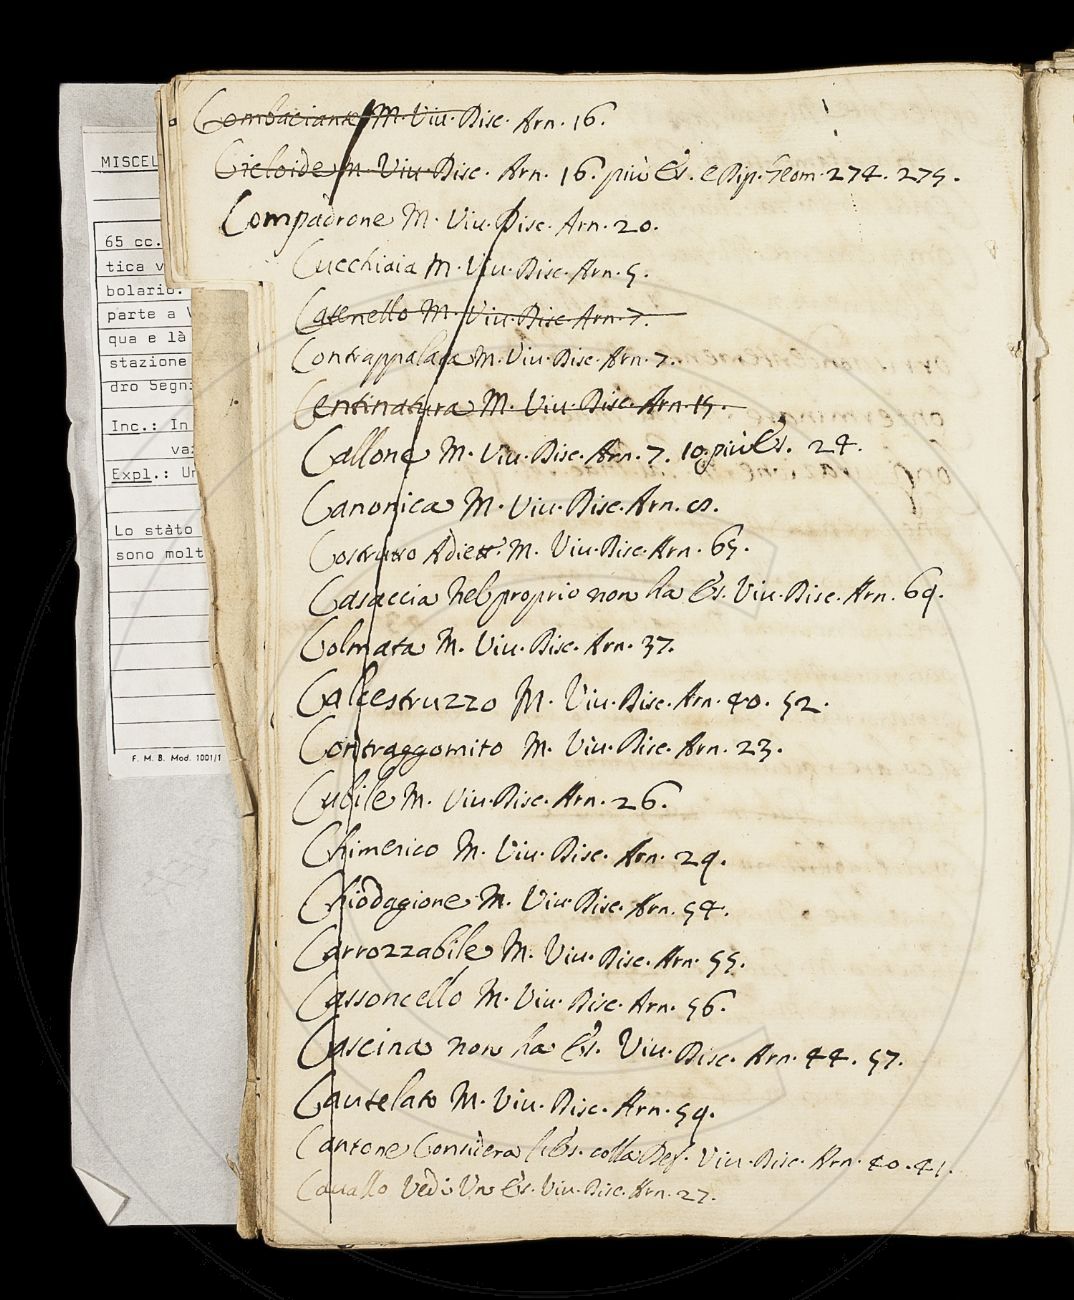 Combaciante M. Viu. Disc. Arn. 16.
Cicloide M. Viu. Disc. Arn. 16. più Es. e Dip. Geom. 274. 275.
Compadrone M. Viu. Disc. Arn. 20.
Cucchiaia M. Viu. Disc. Arn. 5.
Casenello M. Viu. Disc. Arn. 7.
Contrappalata M. Viu. Disc. Arn. 7.
Centinatura M. Viu. Disc. Arn. 15.
Callone M. Viu. Disc. Arn. 7. 10. più Es. 24.
Canonica M. Viu. Disc. Arn.
Costrutto Adiett. M. Viu. Disc. Arn. 65.
Casaccia nel proprio non ha Es. Viu. Disc. Arn. 69.
Colmata M. Viu. Disc. Arn. 37.
Calcestruzzo M. Viu. Disc. Arn. 40. 52.
Contraggomito M. Viu. Disc. Arn. 23.
Cubile M. Viu. Disc. Arn. 26.
Chimerico M. Viu. Disc. Arn. 29.
Chiodagione M. Viu. Disc. Arn. 54.
Carrozzabile M. Viu. Disc. Arn. 55.
Cassoncello M. Viu. Disc. Arn. 56.
Cascina non ha Es. Viu. Disc. Arn. 44. 57.
Cautelato M. Viu. Disc. Arn. 59.
Cantone Considera l'Es. colla Def. Viu. Disc. Arn. 40. 41.
Cauallo Vedi Un Es. Viu. Disc. Arn. 27.
MISCEL
65 cc.
tica v
bolario.
parte a V
qua e là
stazione
dro Segni
Inc.: In
vaz
Expl.: Un
Lo stàto
sono molt
F. M. B. Mod. 1001/1